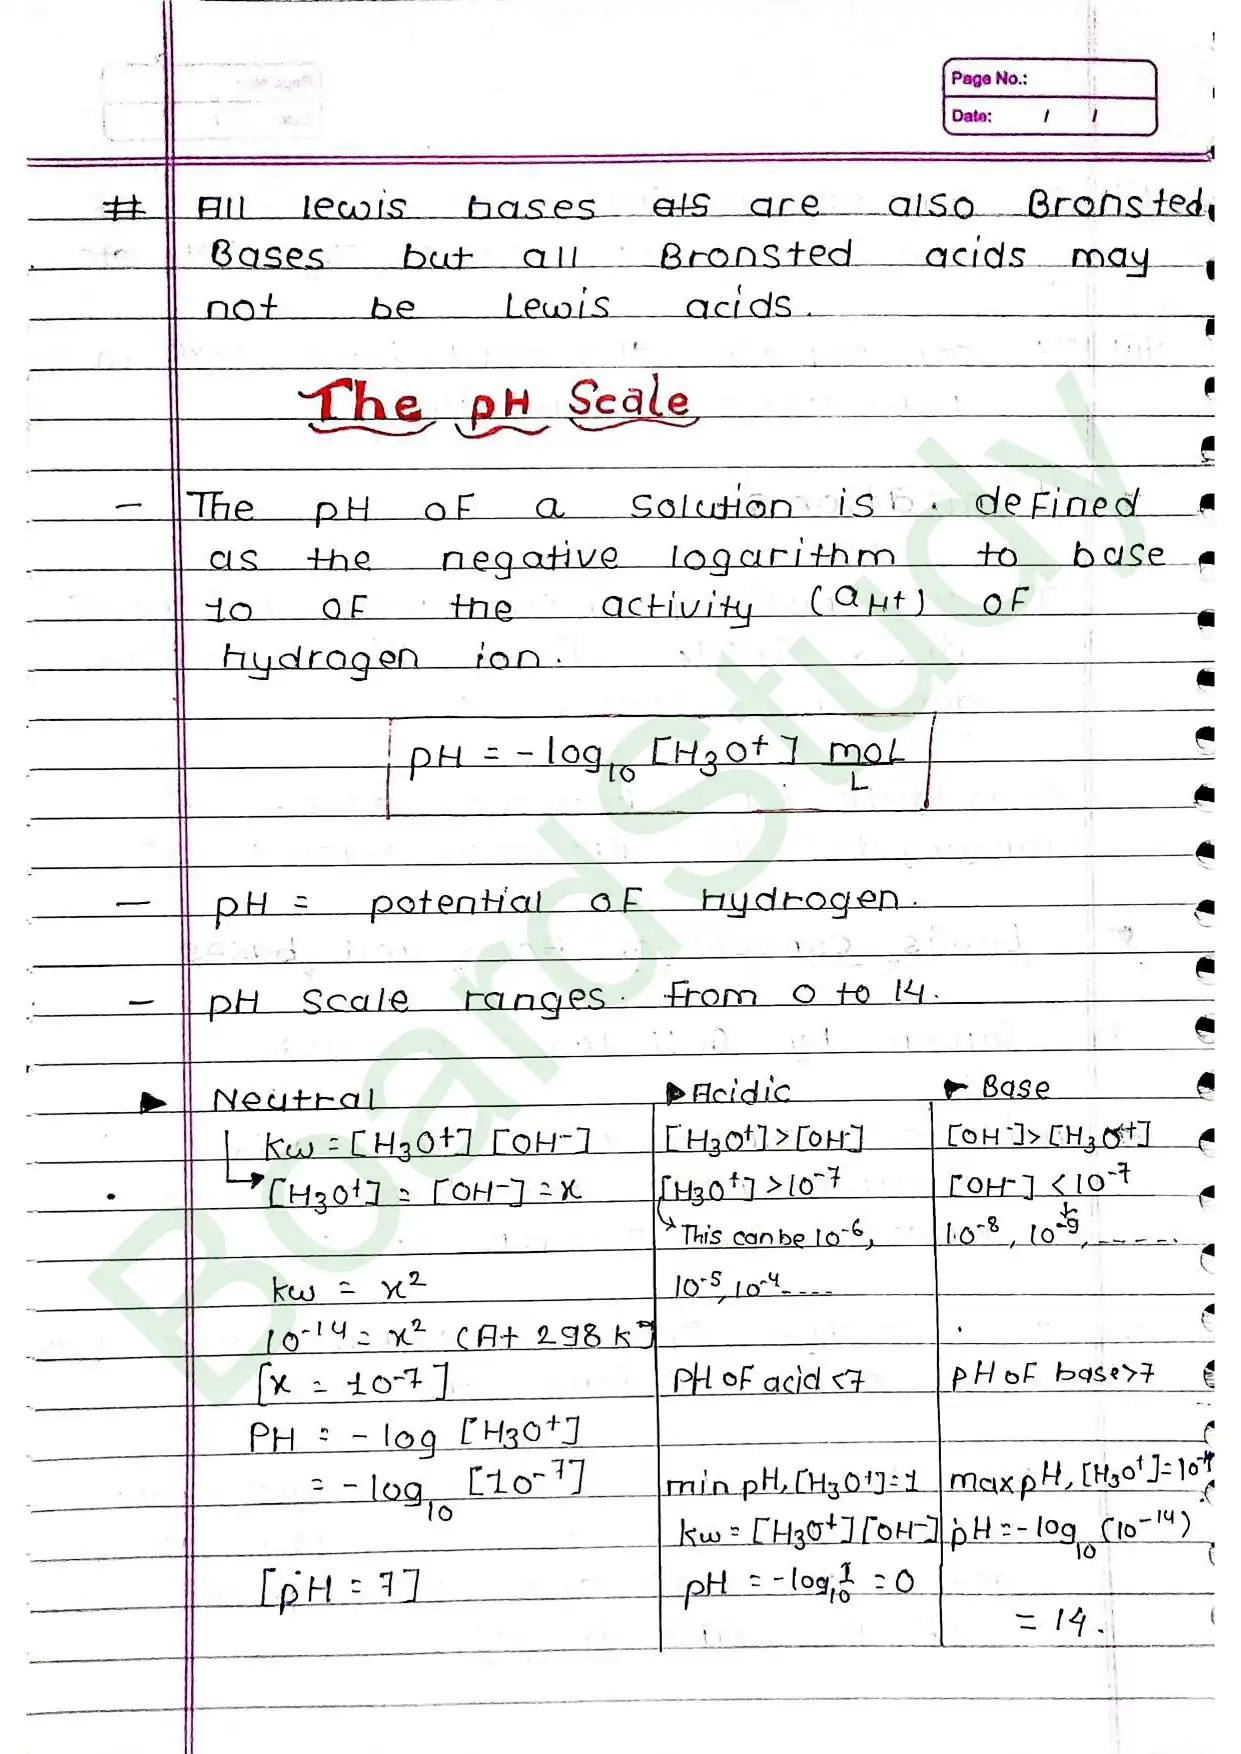 Page No.:
Date: / /
# All lewis bases als are also Bronsted
Bases but all Bronsted acids may
not be Lewis acids.
The pH Scale
- The pH of a solution is defined
as the negative logarithm to base
10 of the activity (aH+) of
hydrogen ion.
pH = -log₁₀ [H₃O⁺] mol/L
- pH = potential of hydrogen.
- pH scale ranges from 0 to 14.
► Neutral
Kw = [H₃O⁺] [OH⁻]
[H₃O⁺] = [OH⁻] = x
Kw = x²
10⁻¹⁴ = x² (At 298 K)
[x = 10⁻⁷]
PH = -log [H₃O⁺]
= -log₁₀ [10⁻⁷]
[pH = 7]
► Acidic
[H₃O⁺] > [OH⁻]
[H₃O⁺] > 10⁻⁷
→ This can be 10⁻⁶,
10⁻⁵, 10⁻⁴ ----
pH of acid < 7
min pH, [H₃O⁺] = 1
Kw = [H₃O⁺] [OH⁻]
pH = -log₁₀ 1 = 0
► Base
[OH⁻] > [H₃O⁺]
[OH⁻] < 10⁻⁷
10⁻⁸, 10⁻⁹, ------
pH of base > 7
max pH, [H₃O⁺] = 10⁻¹⁴
pH = -log₁₀ (10⁻¹⁴)
= 14.
BoardStudy